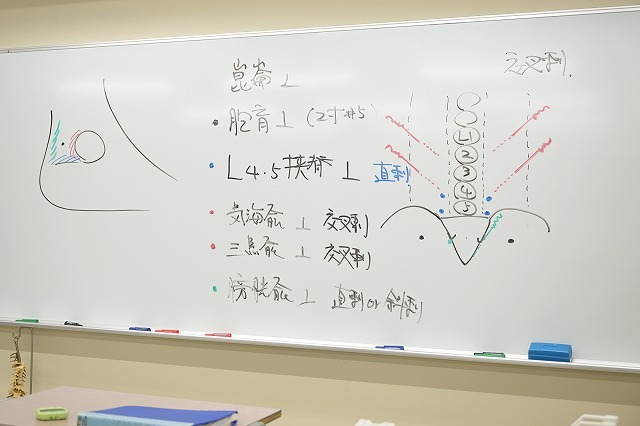 崑崙⊥
交叉刺.
• 胞肓⊥ (2寸#5)
• L4.5挟脊⊥ 直刺
• 気海兪⊥ 交叉刺
• 三焦兪⊥ 交叉刺
• 膀胱兪⊥ 直刺or斜刺
L1
2
3
4
5